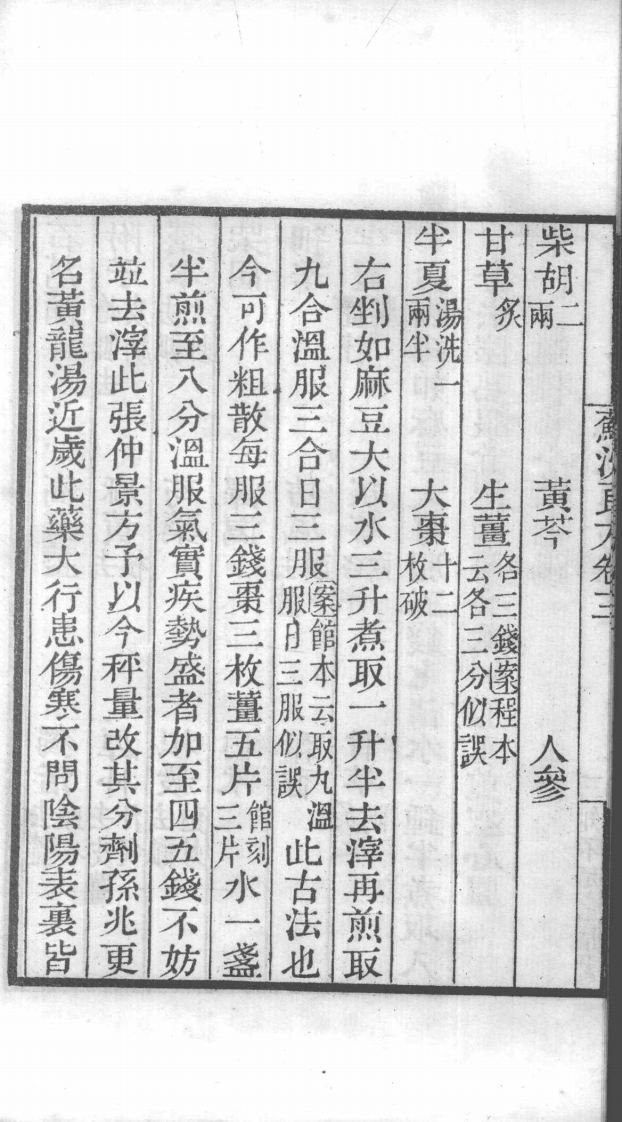 蘇沈良方卷三
柴胡二兩 黃芩 人參
甘草炙 生薑各三錢案程本云各三分似誤
半夏湯洗一兩半 大棗十二枚破
右剉如麻豆大以水三升煮取一升半去滓再煎取
九合溫服三合日三服案館本云取九溫服日三服似誤此古法也
今可作粗散每服三錢棗三枚薑五片館刻三片水一盞
半煎至八分溫服氣實疾勢盛者加至四五錢不妨
竝去滓此張仲景方予以今秤量改其分劑孫兆更
名黃龍湯近歲此藥大行患傷寒不問陰陽表裏皆